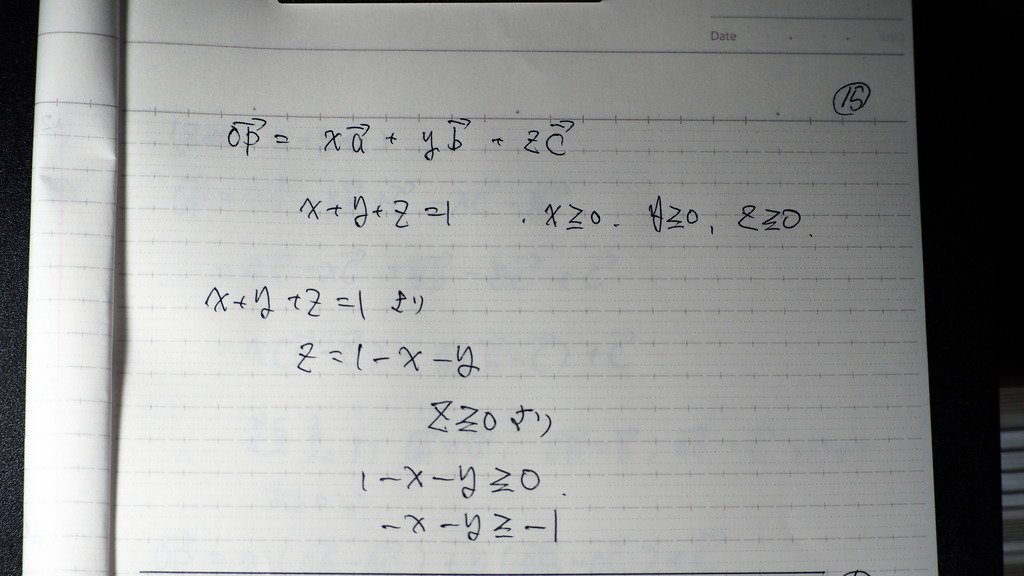 Date
⑮
\overrightarrow{OP} = x\vec{a} + y\vec{b} + z\vec{c}
x+y+z=1 . x≧0. y≧0, z≧0.
x+y+z=1 より
z=1-x-y
z≧0より
1-x-y≧0.
-x-y≧-1